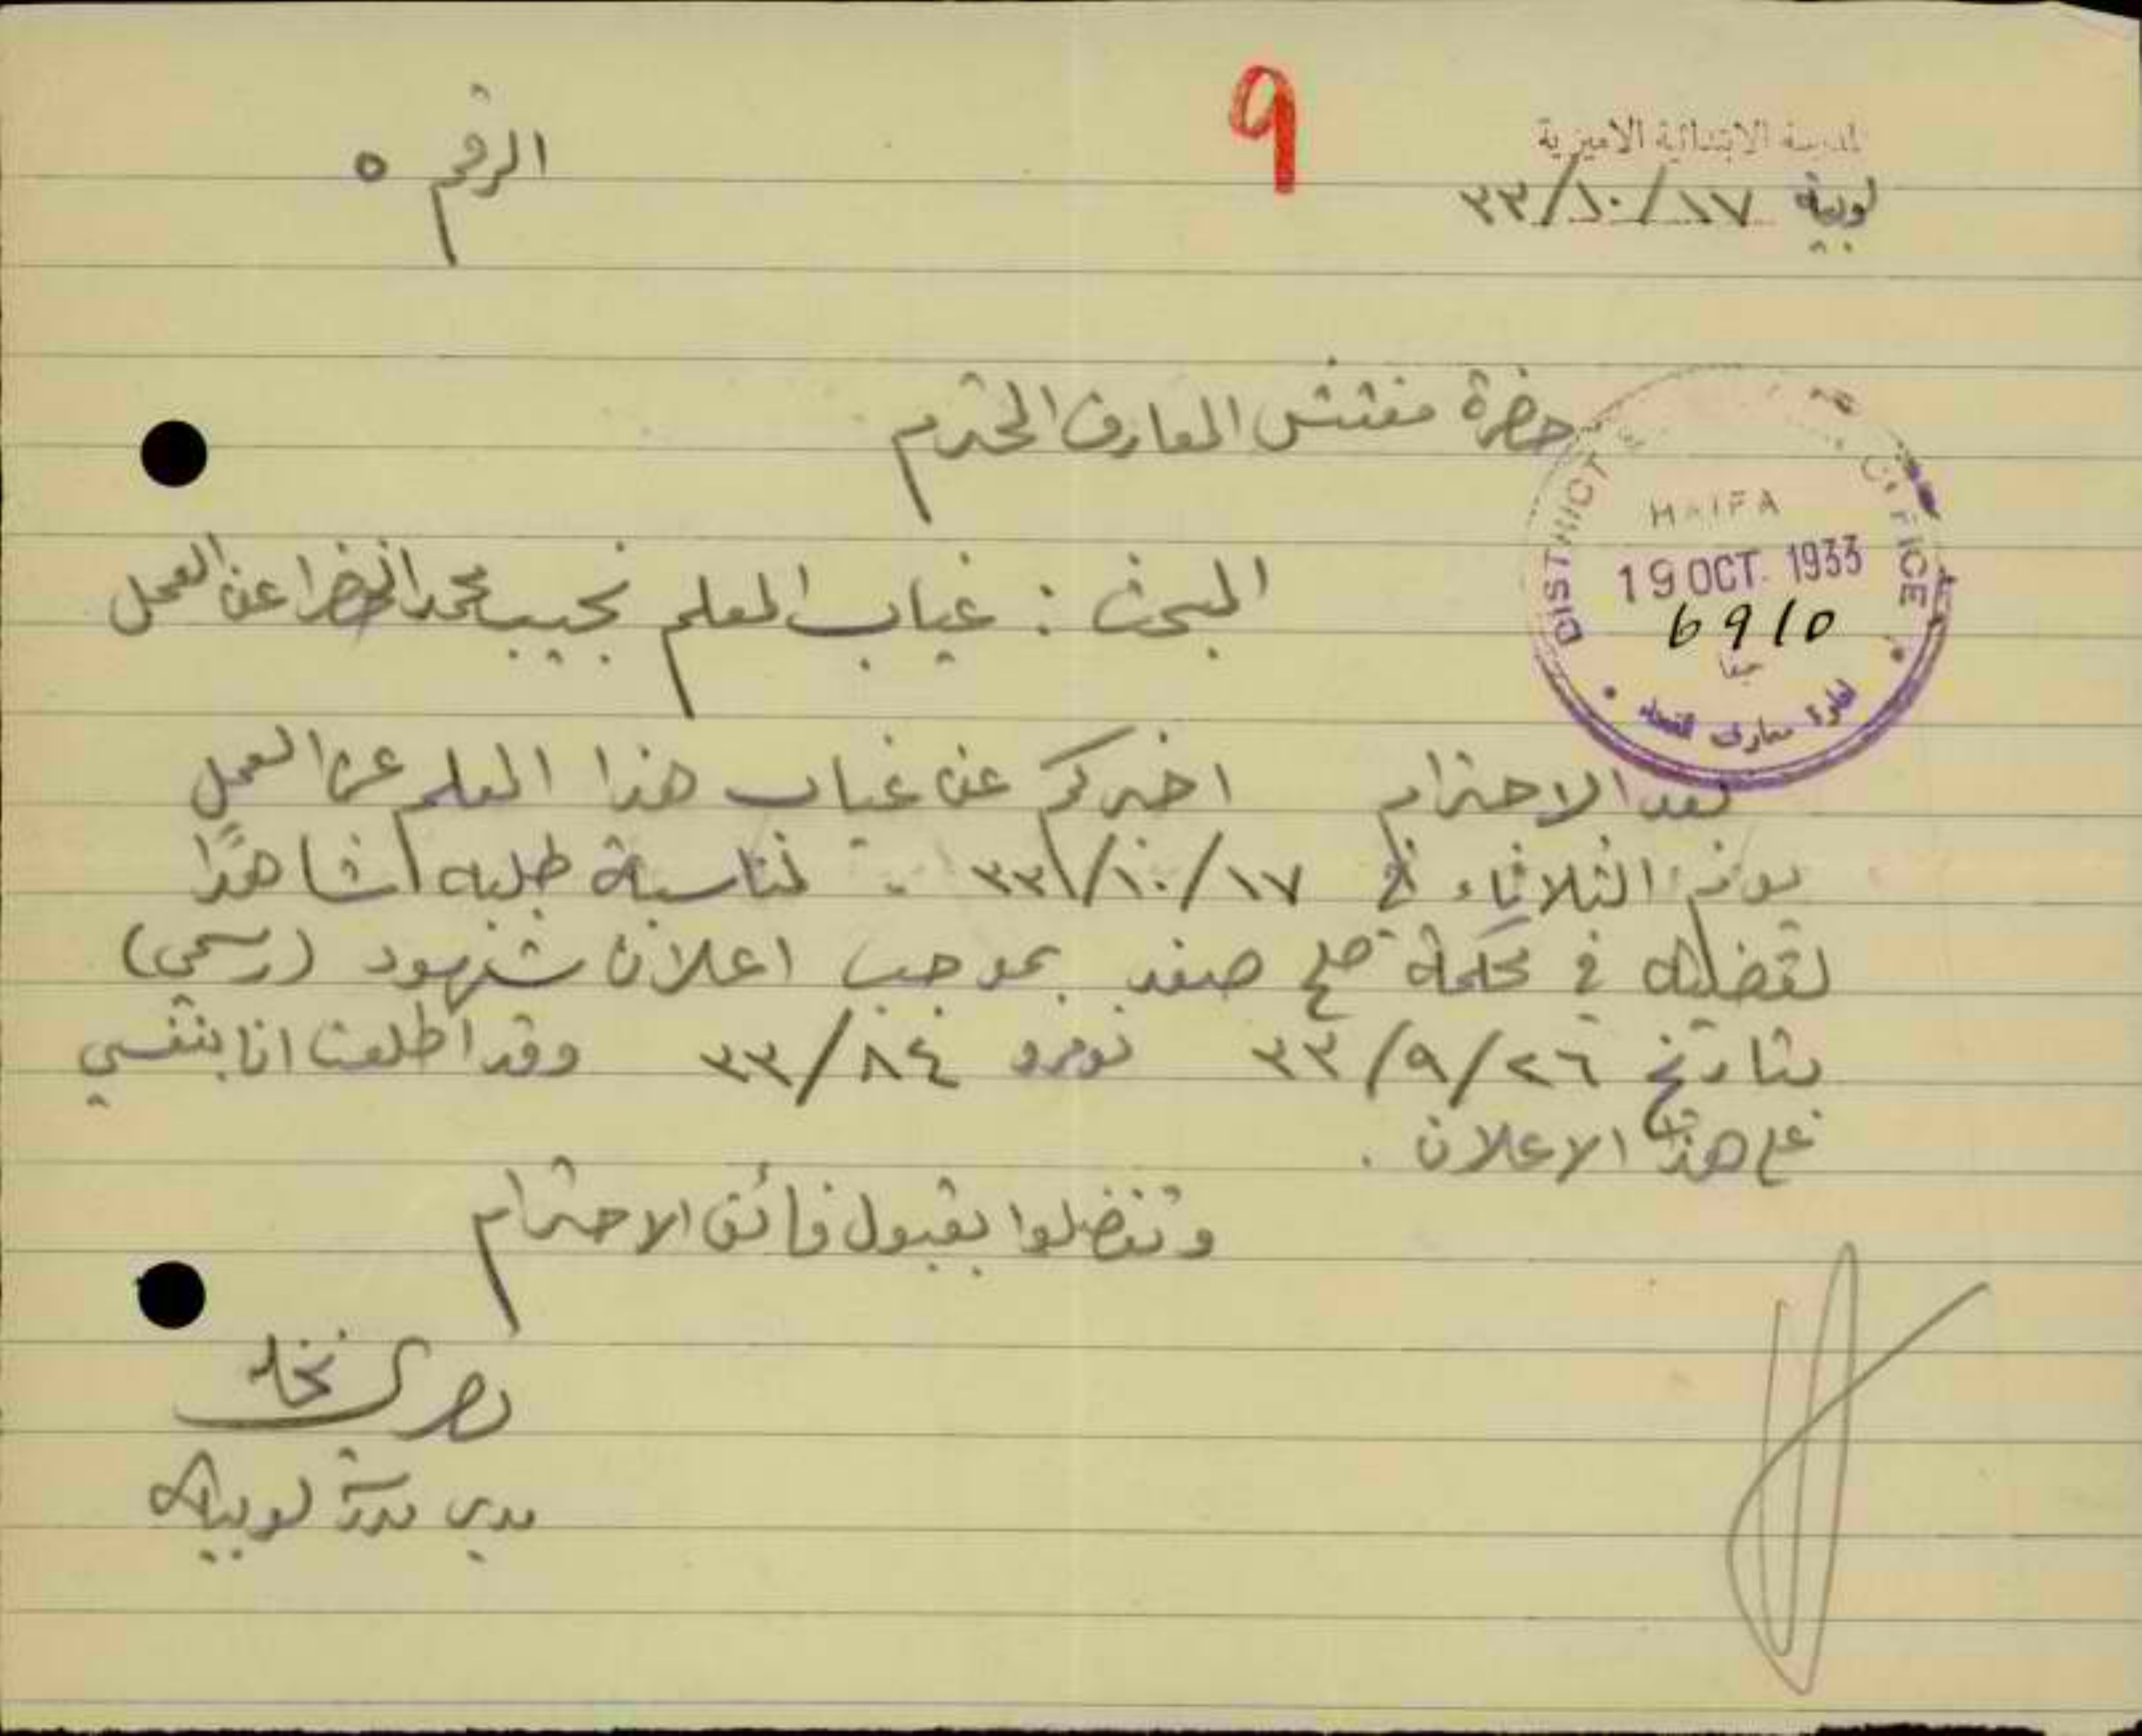 المدرسة الابتدائية الاميرية
9
الرقم ٥
لوبية ١٧/١٠/٣٣
حضرة مفتش المعارف المحترم
DISTRICT OFFICE
HAIFA
19 OCT. 1933
6910
حيفا
معارف
المبحث : غياب المعلم نجيب محمد الخضرا عن العمل
بعد الاحترام اخبركم عن غياب هذا المعلم عن العمل
يوم الثلاثاء في ١٧/١٠/٣٣ . لمناسبة طلبه شاهدًا
لقضية في محكمة صلح صفد بموجب اعلان شهود (رسمي)
بتاريخ ٢٦/٩/٣٣ نومرو ٨٤/٣٣ وقد اطلعت انا بنفسي
على هذا الاعلان .
وتفضلوا بقبول فائق الاحترام
نخله
مدير مدرسة لوبية